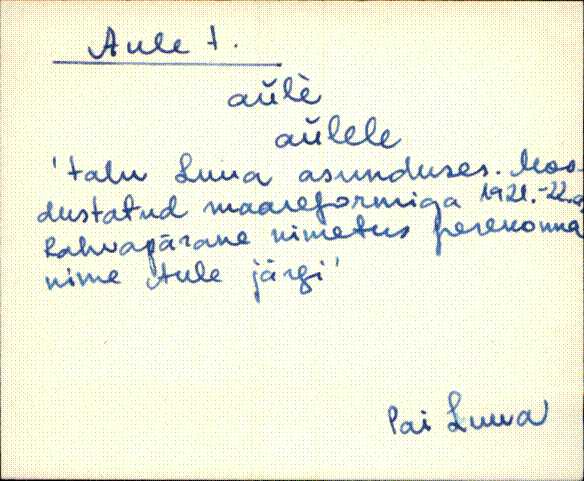 Aule t.
aŭlè
aŭlele
'talu Luua asunduses. Moo-
dustatud maareformiga 1921.-22.a
Rahvapärane nimetus perekonna
nime Aule järgi'
Pai Luua